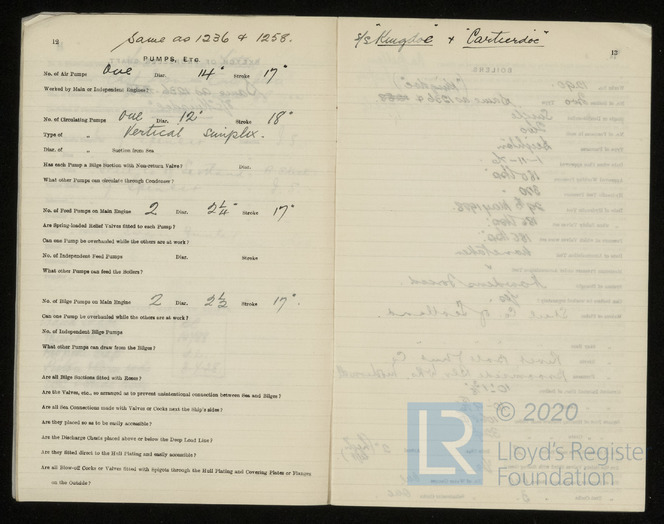 12
Same as 1236 & 1258.
PUMPS, ETC
No. of Air Pumps One Diar. 14" Stroke 17"
Worked by Main or Independent Engines?
No. of Circulating Pumps One Diar. 12" Stroke 18"
Type of " Vertical Simplex.
Diar. of " Suction from Sea
Has each Pump a Bilge Suction with Non-return Valve? Diar.
What other Pumps can circulate through Condenser?
No. of Feed Pumps on Main Engine 2 Diar. 2¼" Stroke 17"
Are Spring-loaded Relief Valves fitted to each Pump?
Can one Pump be overhauled while the others are at work?
No. of Independent Feed Pumps Diar. Stroke
What other Pumps can feed the Boilers?
No. of Bilge Pumps on Main Engine 2 Diar. 2½ Stroke 17".
Can one Pump be overhauled while the others are at work?
No. of Independent Bilge Pumps
What other Pumps can draw from the Bilges?
Are all Bilge Suctions fitted with Roses?
Are the Valves, etc., so arranged as to prevent unintentional connection between Sea and Bilges?
Are all Sea Connections made with Valves or Cocks next the Ship's sides?
Are they placed so as to be easily accessible?
Are the Discharge Chests placed above or below the Deep Load Line?
Are they fitted direct to the Hull Plating and easily accessible?
Are all Blow-off Cocks or Valves fitted with Spigots through the Hull Plating and Covering Plates or Flanges
on the Outside?
S/S "Kingdoc" & "Cartierdoc"
13
© 2020
LR
Lloyd's Register
Foundation